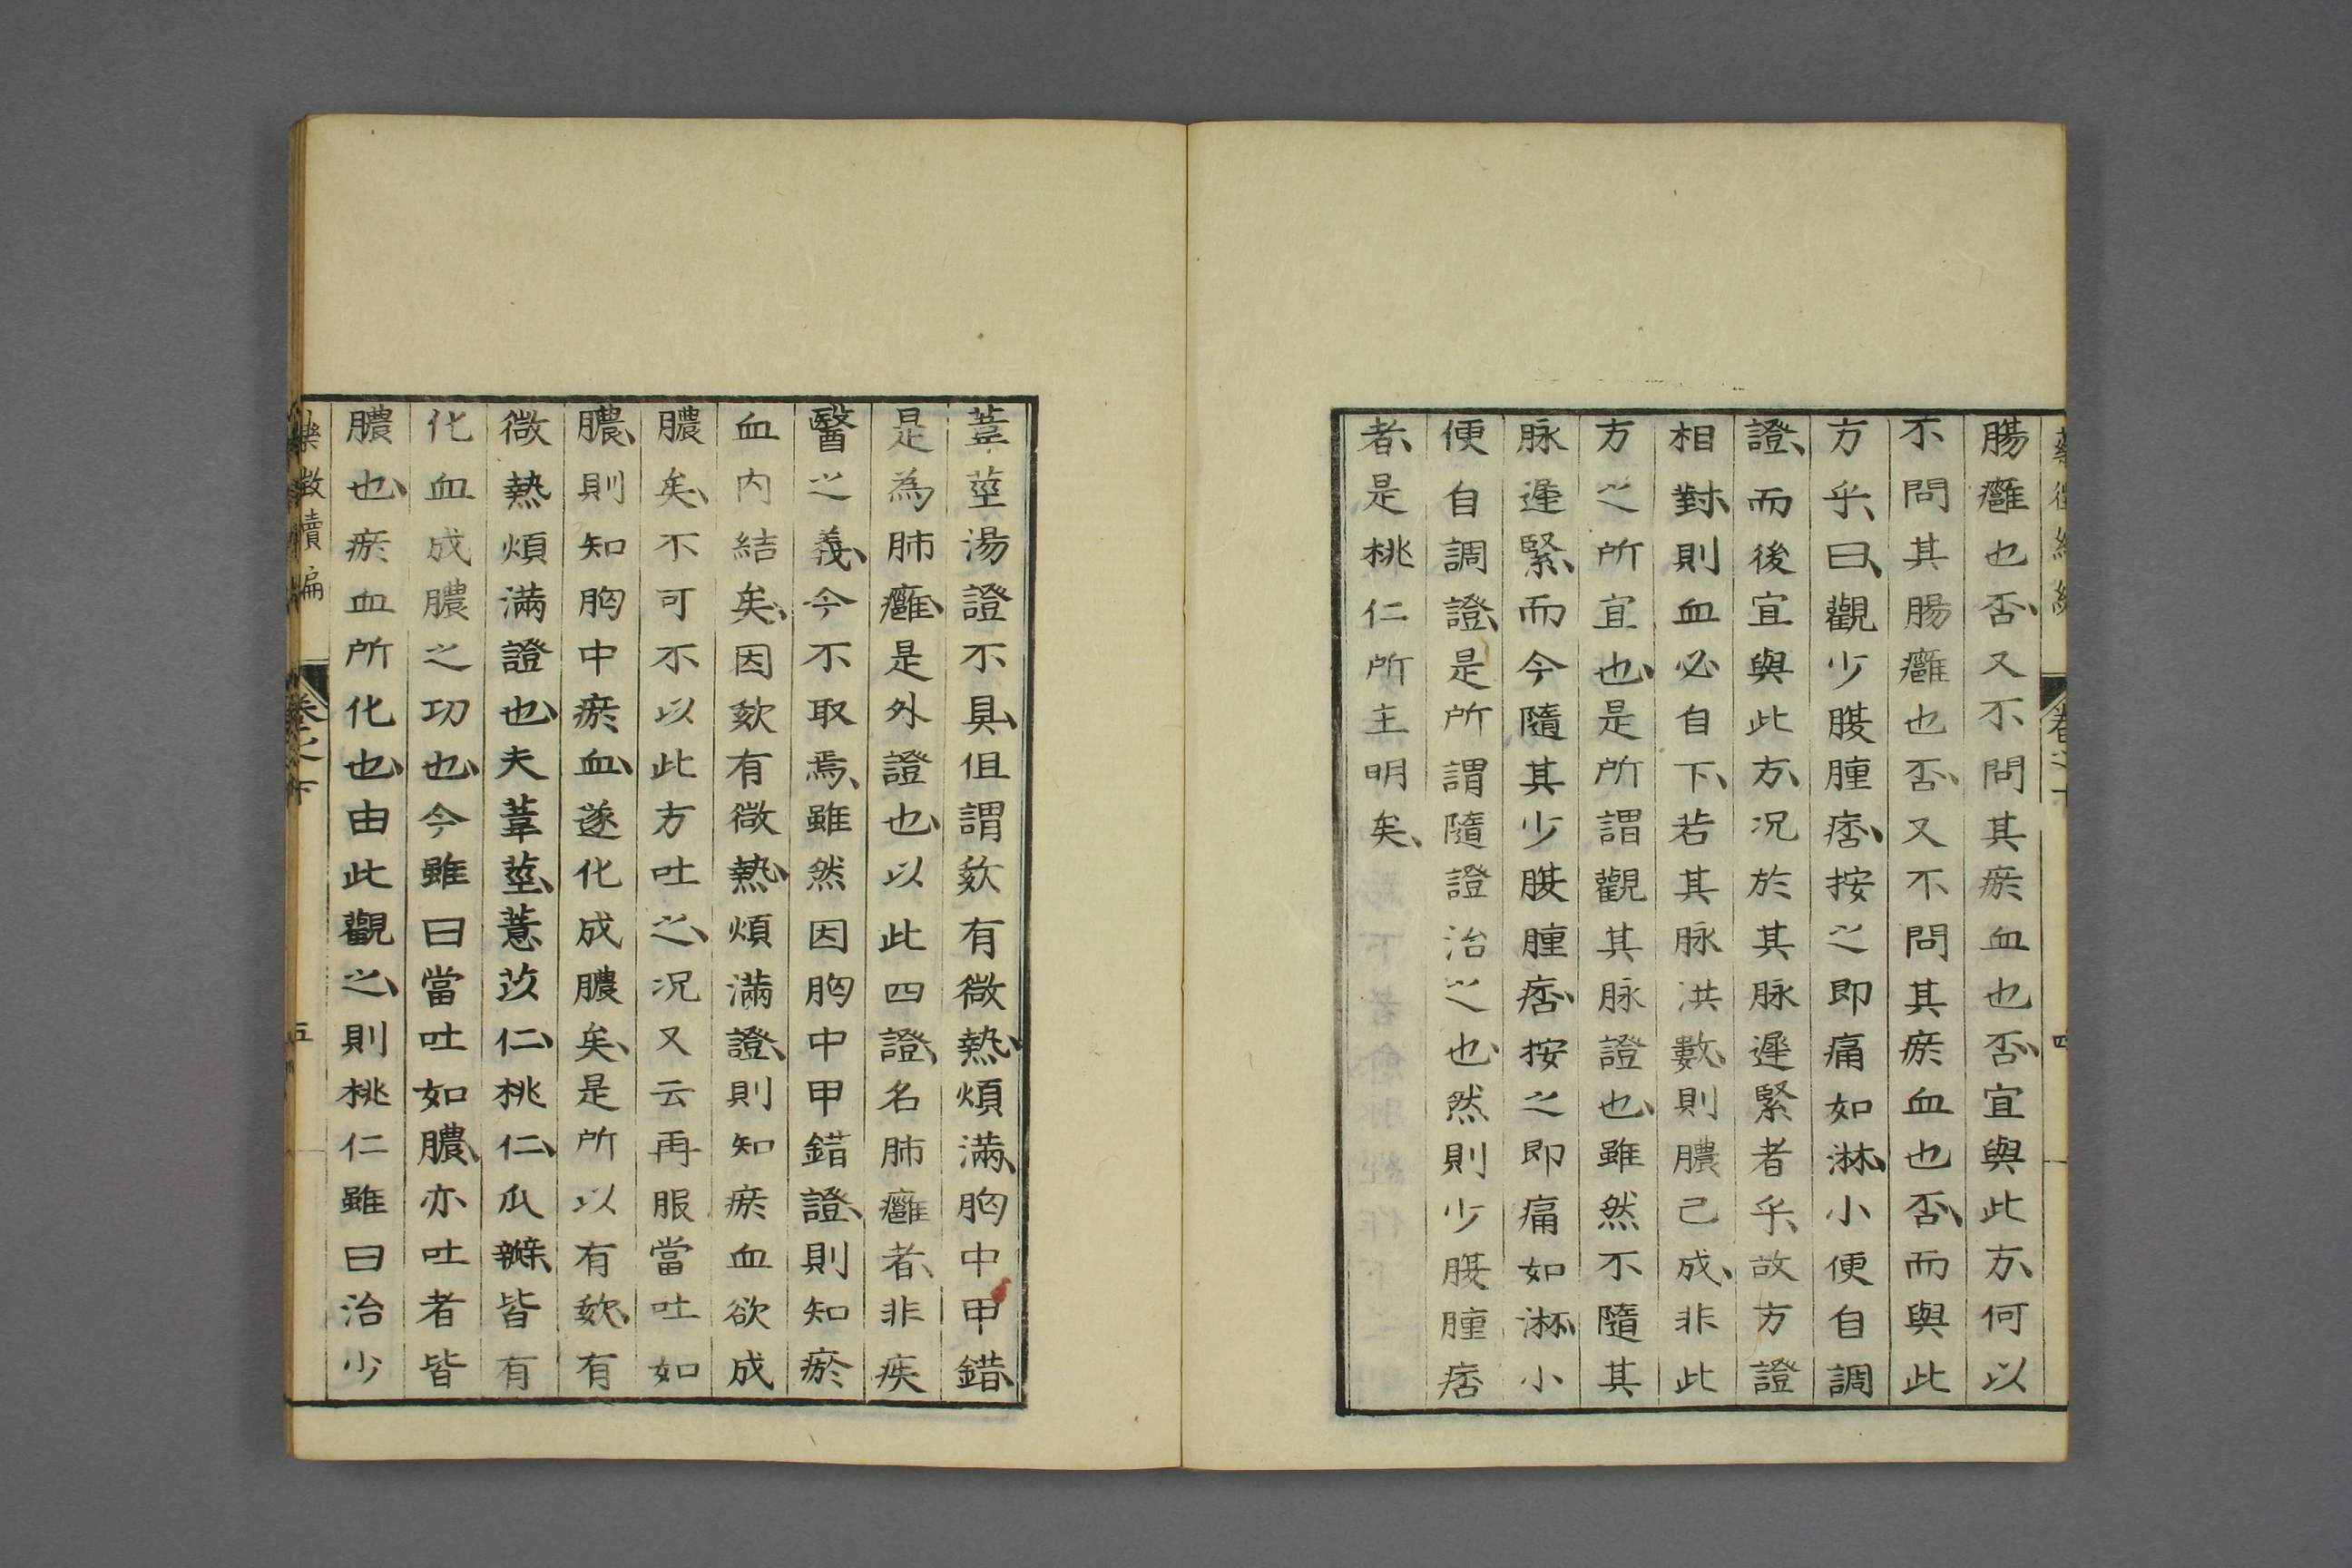 腸癰也否、又不問其瘀血也否、宜與此方、何以
不問其腸癰也否、又不問其瘀血也否、而與此
方乎、曰、觀少腹腫痞、按之即痛如淋、小便自調
證、而後宜與此方、況於其脉遲緊者乎、故方證
相對、則血必自下、若其脉洪數、則膿已成、非此
方之所宜也、是所謂觀其脉證也、雖然不隨其
脉遲緊、而今隨其少腹腫痞、按之即痛如淋、小
便自調證、是所謂隨證治之也、然則少腹腫痞
者、是桃仁所主明矣、
葦莖湯證不具、但謂欬有微熱、煩滿、胸中甲錯、
是為肺癰、是外證也、以此四證、名肺癰者、非疾
醫之義、今不取焉、雖然因胸中甲錯證、則知瘀
血內結矣、因欬有微熱、煩滿證、則知瘀血欲成
膿矣、不可不以此方吐之、況又云再服當吐如
膿、則知胸中瘀血、遂化成膿矣、是所以有欬、有
微熱煩滿證也、夫葦莖、薏苡仁、桃仁、瓜瓣、皆有
化血成膿之功也、今雖曰當吐如膿、亦吐者皆
膿也、瘀血所化也、由此觀之、則桃仁雖曰治少
續編
卷之下
五